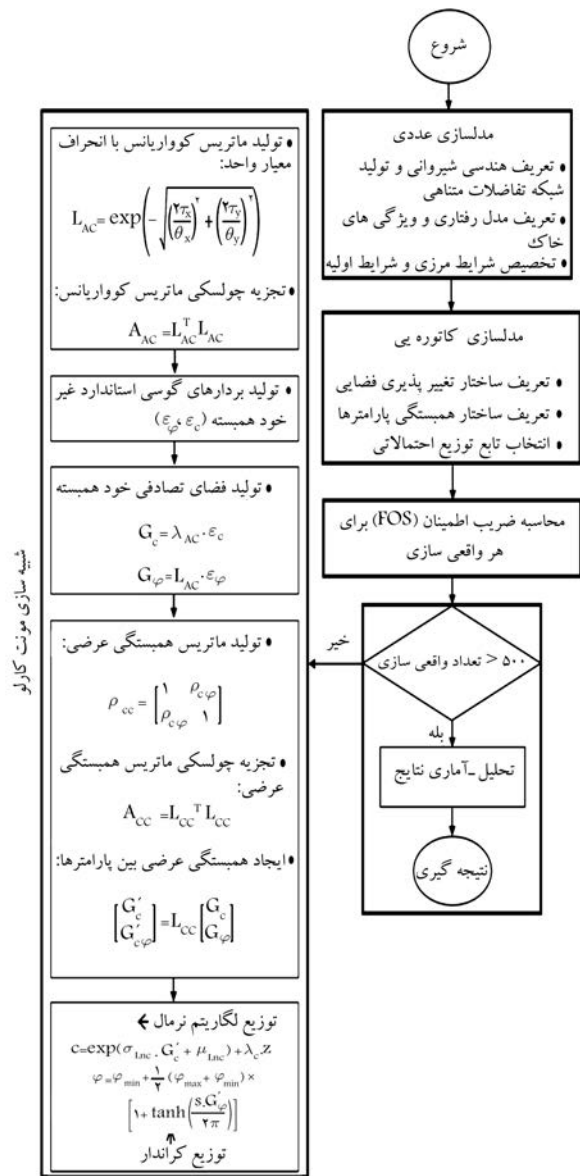 شروع
مدلسازی عددی
• تعریف هندسی شیروانی و تولید
شبکه تفاضلات متناهی
• تعریف مدل رفتاری و ویژگی های
خاک
• تخصیص شرایط مرزی و شرایط اولیه
مدلسازی کاتوره یی
• تعریف ساختار تغییر پذیری فضایی
• تعریف ساختار همبستگی پارامترها
• انتخاب تابع توزیع احتمالاتی
محاسبه ضریب اطمینان (FOS) برای
هر واقعی سازی
۵۰۰ < تعداد واقعی سازی
خیر
بله
تحلیل-آماری نتایج
نتیجه گیری
شبیه سازی مونت کارلو
• تولید ماتریس کوواریانس با انحراف
معیار واحد:
L_AC = exp(-√((۲τ_x/θ_x)^۲ + (۲τ_y/θ_y)^۲))
• تجزیه چولسکی ماتریس کوواریانس:
A_AC = L_AC^T L_AC
• تولید بردارهای گوسی استاندارد غیر
خود همبسته (ε_φ، ε_c)
• تولید فضای تصادفی خود همبسته
G_c = λ_AC · ε_c
G_φ = L_AC · ε_φ
• تولید ماتریس همبستگی عرضی:
ρ_cc = [۱ ρ_cφ
ρ_cφ ۱]
• تجزیه چولسکی ماتریس همبستگی
عرضی:
A_CC = L_CC^T L_CC
• ایجاد همبستگی عرضی بین پارامترها:
[G′_c
G′_cφ] = L_CC [G_c
G_φ]
توزیع لگاریتم نرمال ←
c = exp(σ_Lnc . G′_c + μ_Lnc) + λ_c.z
φ = φ_min + ۱/۲ (φ_max + φ_min) ×
[۱ + tanh(s.G′_φ/۲π)]
توزیع کراندار